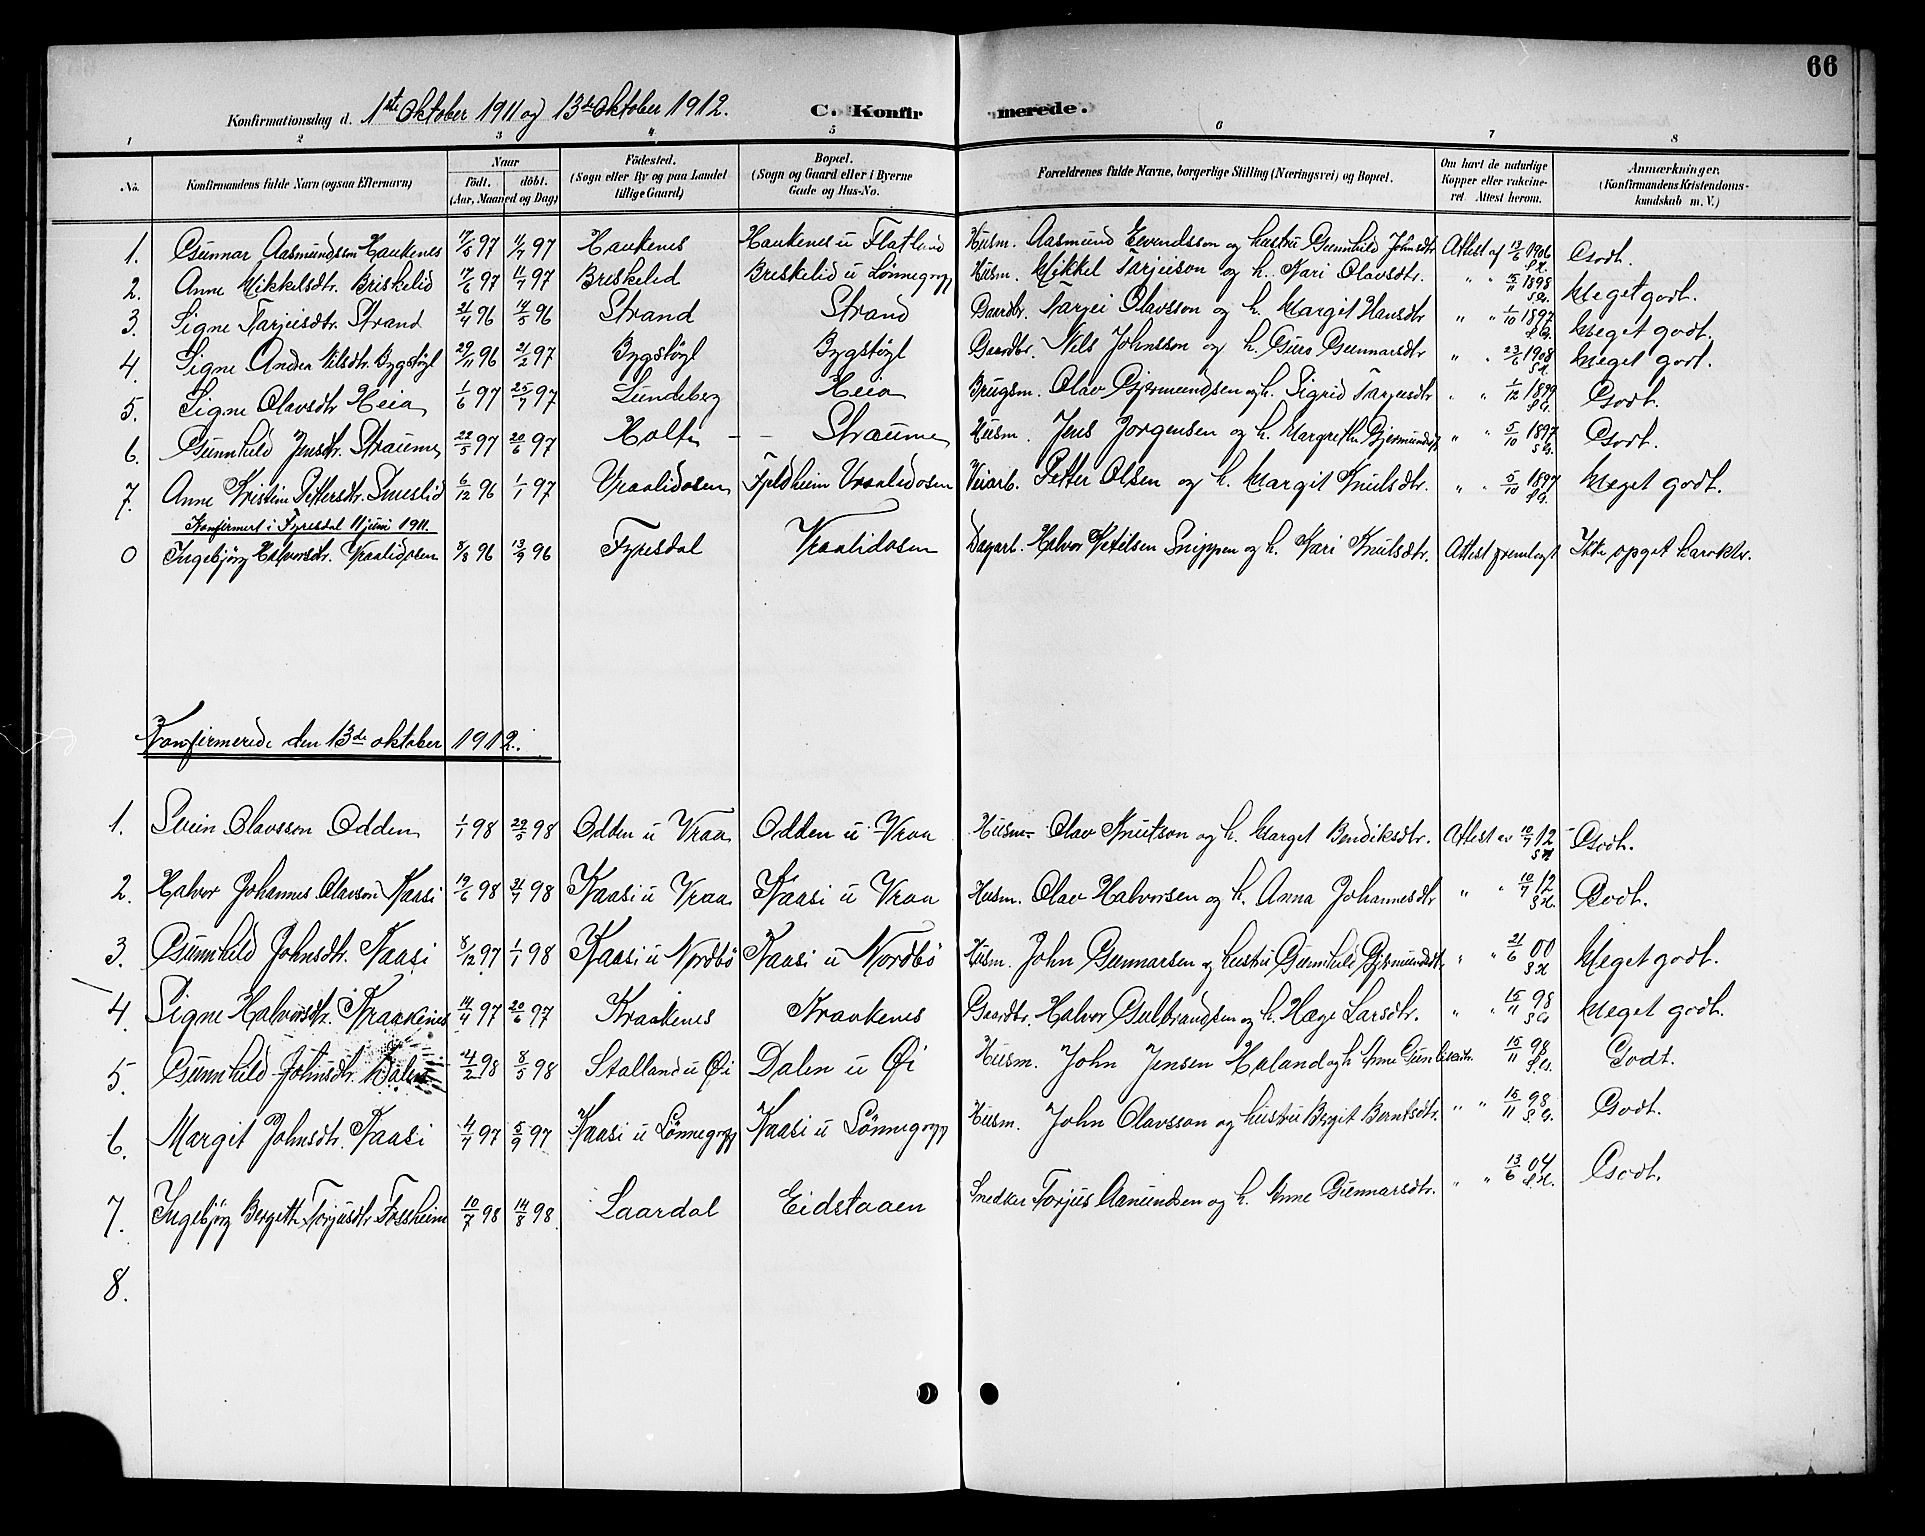 66
Konfirmationsdag d. 1ste Oktober 1911 og 13de Oktober 1912. C. Konfir merede.
1 2 3 4 5 6 7 8
No. Konfirmandens fulde Navn (ogsaa Efternavn) Naar Födt. döbt. (Aar, Maaned og Dag) Födested. (Sogn eller By og paa Landet tillige Gaard) Bopæl. (Sogn og Gaard eller i Byerne Gade og Hus-No. Forældrenes fulde Navne, borgerlige Stilling (Næringsvei) og Bopæl. Om havt de naturlige Kopper eller vakcineret. Attest herom. Anmærkninger. (Konfirmandens Kristendomskundskab m. V.)
1. Gunnar Aasmundsen Haukenes 97 97 Haukenes Haukenes u Flatland Husm. Aasmund Eivindsson og hustru Gunnhild Johnsdtr Attest af 13/6 1906 Godt.
2. Anne Mikkelsdtr. Briskelid 17/6 97 11/7 97 Briskelid Briskelid u Lönnegrey Husm. Mikkel Tarjeison og h. Kari Olavsdtr. " " 15/11 1898 Meget godt.
3. Signe Tarjeisdtr. Strand 21/4 96 14/5 96 Strand Strand Gaardbr. Tarjei Olavsson og h. Margit Hansdtr " " 1/10 1897 Meget godt.
4. Signe Andrea Nilsdtr. Bygstöyl 29/11 96 21/2 97 Bygstöyl Bygstöyl Gaardbr. Nils Johnsson og h. Guro Gunnarsdtr " " 23/6 1908 Meget godt.
5. Signe Olavsdtr Heia 1/6 97 25/7 97 Lundeberg Heia Brugsm. Olav Gjermundsen og h. Sigrid Tarjeisdtr " " 1/12 1899 Godt.
6. Gunnhild Jensdtr. Straume 22/5 97 20/6 97 Holte - - Straume Husm. Jens Jorgensen og h. Margrethe Bjermundsdtr " " 5/10 1897 Godt.
7. Anne Kristine Pettersdtr. Smeslid 6/12 96 1/1 97 Vraalidosen Fjeldheim Vraalidosen Veiarb. Petter Olsen og h. Margit Knutsdtr. " " 5/10 1897 Meget godt.
Konfirmert i Fyresdal 11 juni 1911.
0 Ingebjörg Halvorsdtr. Vraalidosen 8/8 96 13/9 96 Fyresdal Vraalidosen Dagarb. Halvor Ketilsen Snippen og h. Kari Knutsdtr. Attest fremlagt Ikke opget karakter.
Konfirmerede den 13de oktober 1912.
1. Svein Olavsson Odden 1/1 98 29/5 98 Odden u Vraa Odden u Vraa Husm. Olav Knutson og h. Marget Bendiksdtr. Attest av 10/7 12 Godt.
2. Halvor Johannes Olavson Kaasi 19/6 98 31/7 98 Kaasi u Vraa Kaasi u Vraa Husm. Olav Halvorsen og h. Anna Johannesdtr " " 10/7 12 Godt.
3. Gunnhild Johnsdtr. Kaasi 8/12 97 1/1 98 Kaasi u Nordbö Kaasi u Nordbö Husm. John Gunnarsen og hustru Gunnhild Gjermundsdtr " " 21/6 00 Meget godt.
4. Signe Halvorsdtr. Kraakenes 14/4 97 20/6 97 Kraakenes Kraakenes Gaardbr. Halvor Gulbrandsen og h. Hæge Larsdtr. " " 15/11 98 Meget godt.
5. Gunnhild Johnsdtr. Dalen 2/2 98 8/5 98 Stalland u Øi Dalen u Øi Husm. John Jensen Haland og h Anne Gunleiksdtr. 15/11 98 Godt.
6. Margit Johnsdtr. Kaasi 4/7 97 5/9 97 Kaasi u Lönnegrey Kaasi u Lönnegrey Husm. John Olavsson og hustru Bergit Berntsdtr. " " 15/11 98 Godt.
7. Ingebjörg Bergette Torjusdtr Fossheim 10/7 98 14/8 98 Laardal Eidstaaen Snedker Torjus Aanundsen og h. Anne Gunnarsdtr. " " 13/6 04 Godt.
8.